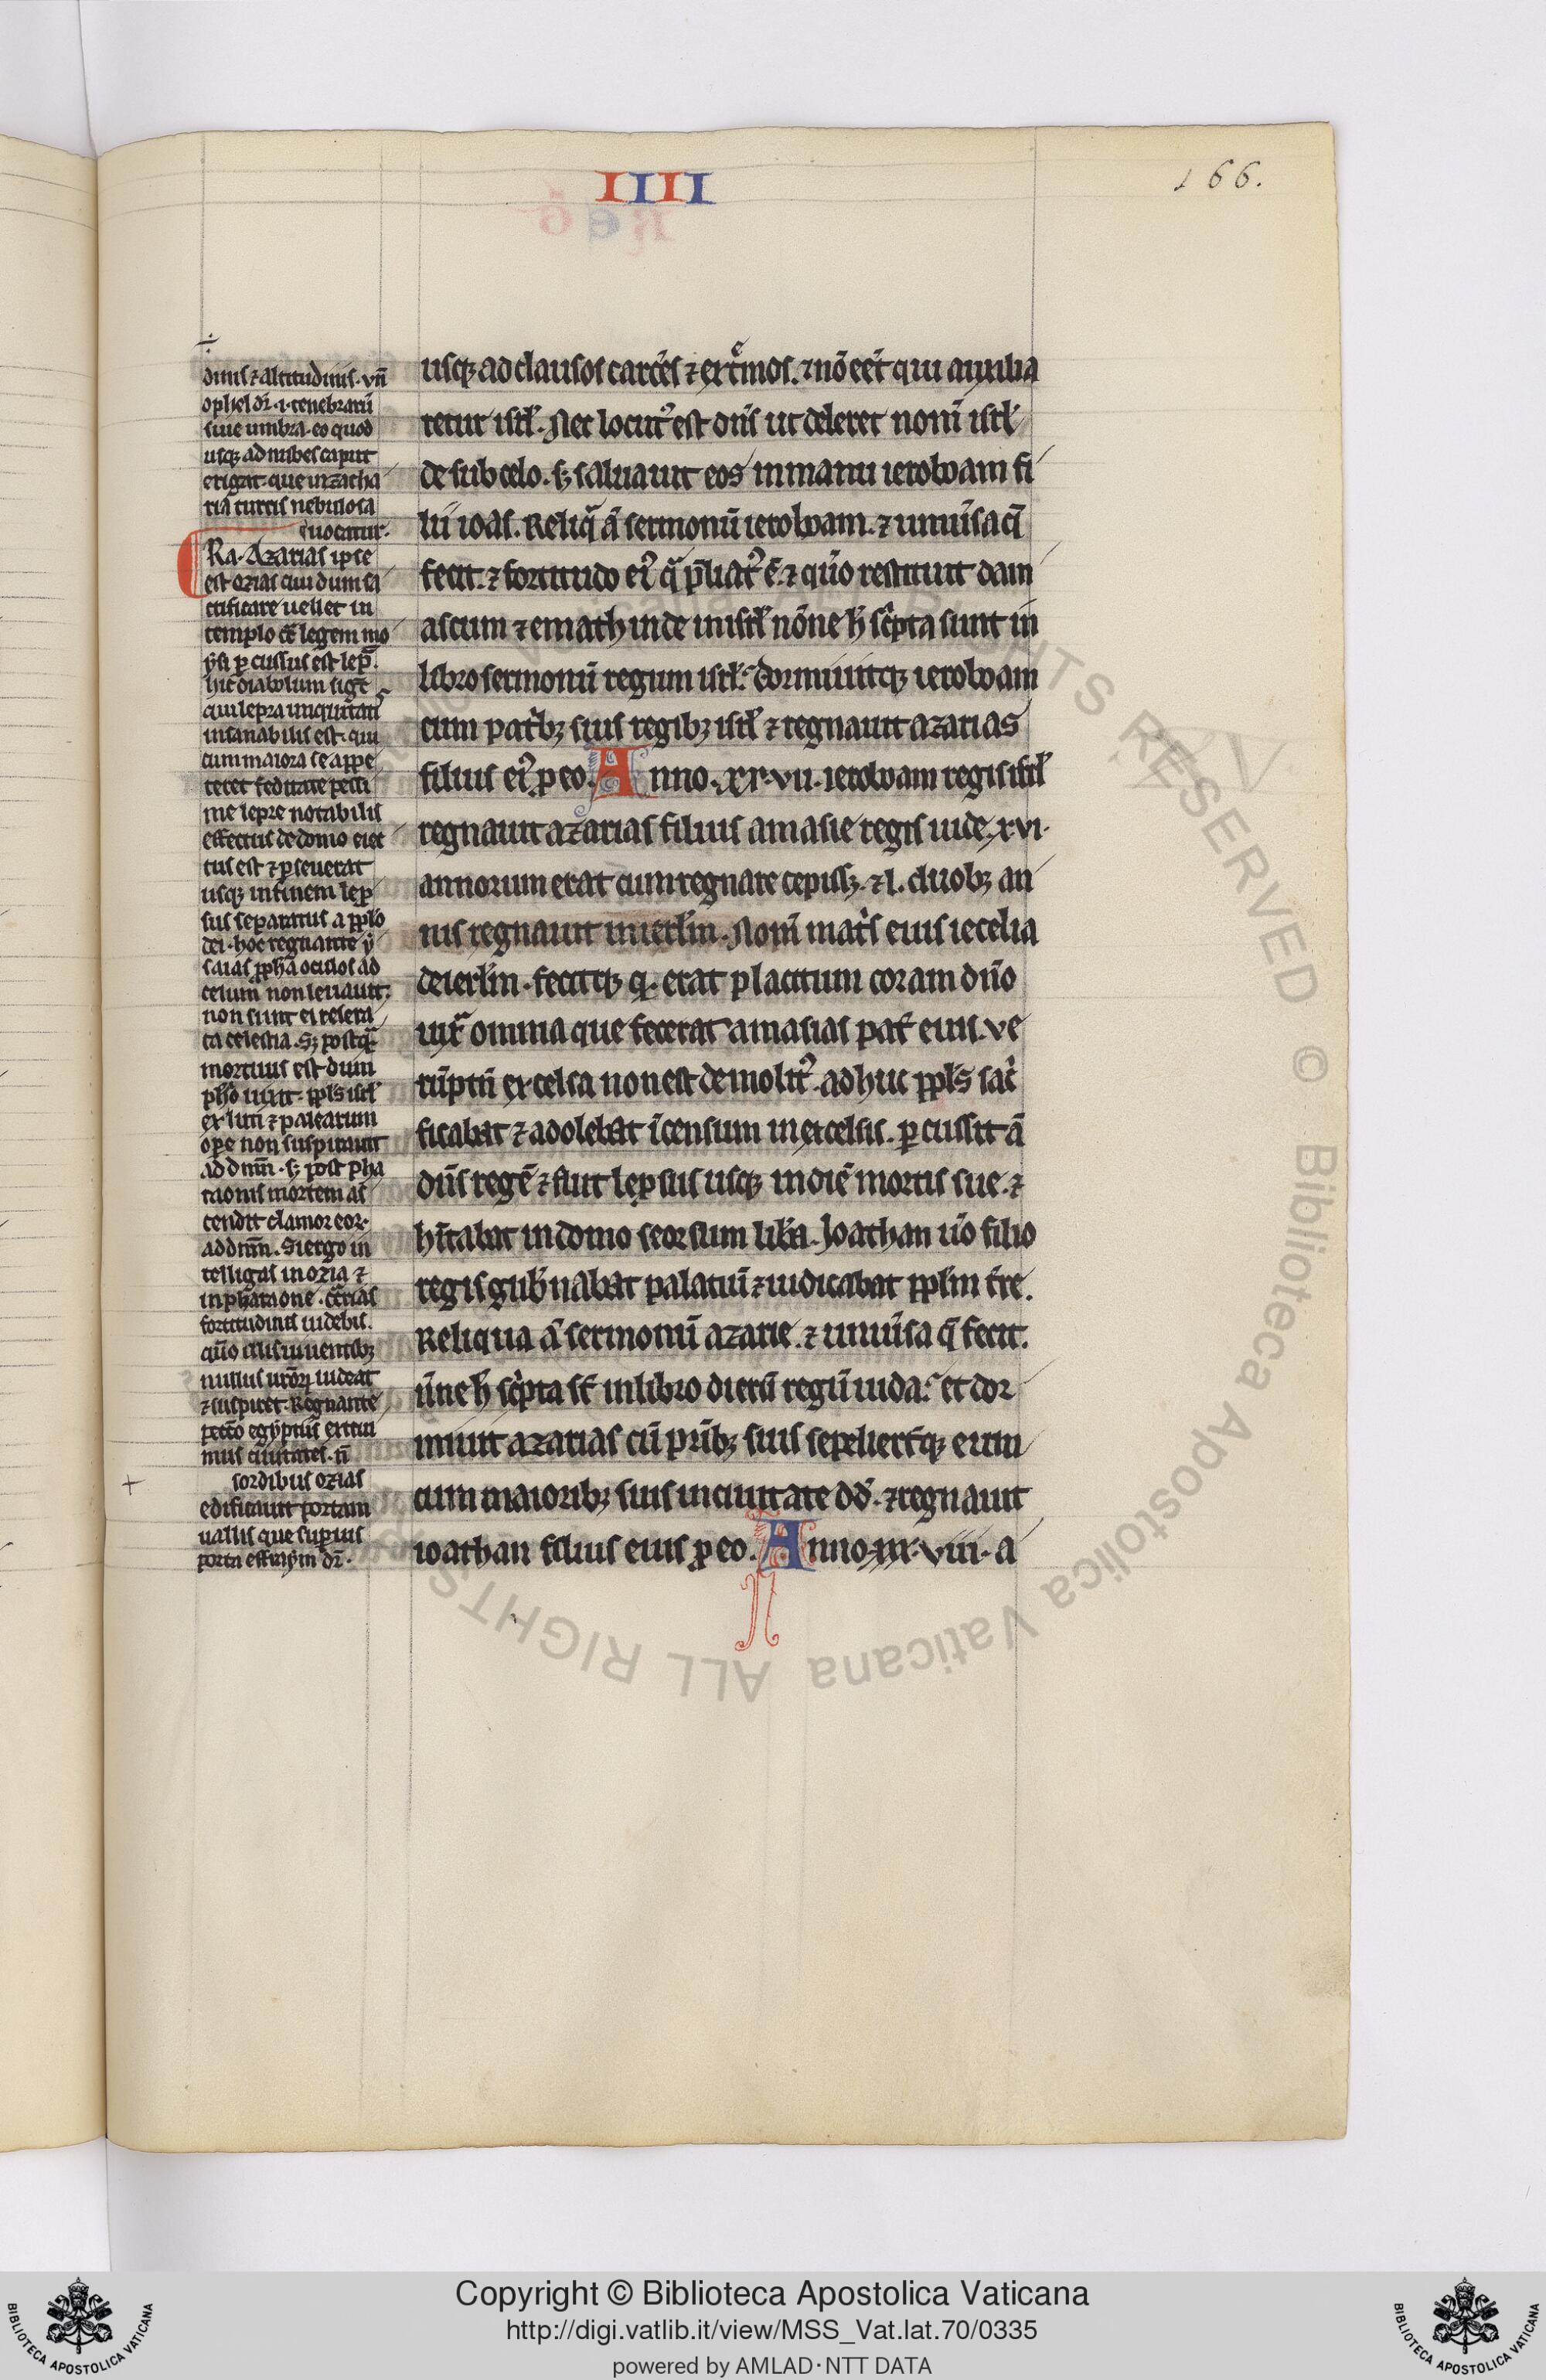 IIII
166.
dinis ⁊ altitudinis. vñ
ophel dr̃. i. tenebrarū
siue umbra. eo quod
usq; ad nubes caput
erigat. que in zacha
ria turris nebulosa
uocatur.
Ra. Azarias ipse
est ozias cui dum sa
ctificare uellet in
templo cõ legem mo
ysi ꝑcussus est lepᵃ.
hic diabolum sigͭ
cui lepra iniquitatis
insanabilis est. qui
cum maiora se appe
teret feditate pessi
me lepre notabilis
effectus de domo eiec
tus est ⁊ ꝑseuerat
usq; in finem lepͦ
sus separatus a pplo
dei. hoc regnante y
saias ꝓpha oculos ad
celum non leuauit.
non sunt ei resera
ta celestia. S; postqᵃ
mortuus est dum
phͦ uixit. ppls isrl̃
ex luti ⁊ palearum
oꝑe non suspirauit
ad dnm̃. s; post pha
raonis mortem as
cendit clamor eoꝝ
ad dnm̃. Si ergo in
telligas in ozia ⁊
in pharaone. cõtrias
fortitudinis uidebis.
quõ illis uiuentib;
nullus nr̃oꝝ uideat
⁊ suspiret. Regnante
peccō egyptiis extrui
mus ciuitates. ñ
sordibus ozias
edificauit portam
uallis que superius
porta effraym dr̃.
usq; ad clausos carc̃es ⁊ extͤmos. ⁊ nõ eẽt qui auxilia
retur isrl̃. Nec locut᷒ est dñs ut deleret nom̃ isrl̃
de sub celo. s; saluauit eos in manu ieroboam fi
lii ioas. Reliqͣ ã sermonū ieroboam. ⁊ uniũsa q̃
fecit. ⁊ fortitudo ei᷒ qͣ p̃liat᷒ ẽ. ⁊ quõ restituit dam
ascum ⁊ emath iude in isrl̃ nõne h̃ scͥpta sunt in
libro sermonū regum isrl̃. dormiuitq; ieroboam
cum patͥb; suis regib; isrl̃ ⁊ regnauit azarias
filius ei᷒ ꝓ eo. Anno. xx. vii. ieroboam regis isrl̃
regnauit azarias filius amasie regis iude. xvi.
annorum erat cum regnare cepiss;. ⁊ l. duob; an
nis regnauit in ierl̃m. Nom̃ matͥs eius iecelia
de ierl̃m. fecitq; qͩ erat placitum coram dño
iuxͣ omnia que fecerat amasias pat̃ eius. Ve
rūptñ excelsa non est demolit᷒. adhuc ppl̃s sacͥ
ficabat ⁊ adolebat ĩcensum in excelsis. ꝑcussit ã
dñs regẽ ⁊ fuit leprosus usq; in diẽ mortis sue. ⁊
hĩtabat in domo seorsum lib̃a. Joathan ũo filio
regis gub̃nabat palatiũ ⁊ iudicabat ppl̃m t̃re.
Reliqua ã sermonũ azarie. ⁊ uniũsa q̃ fecit.
ñne h̃ scͥpta st̃ in libro dierũ regũ iuda. et dor
miuit azarias cũ pr̃ib; suis sepelier̃tq; eum
cum maiorib; suis in ciuitate dd̃. ⁊ regnauit
ioathan filius eius ꝓ eo. Anno. xxx. viii. a
Copyright © Biblioteca Apostolica Vaticana
http://digi.vatlib.it/view/MSS_Vat.lat.70/0335
powered by AMLAD·NTT DATA